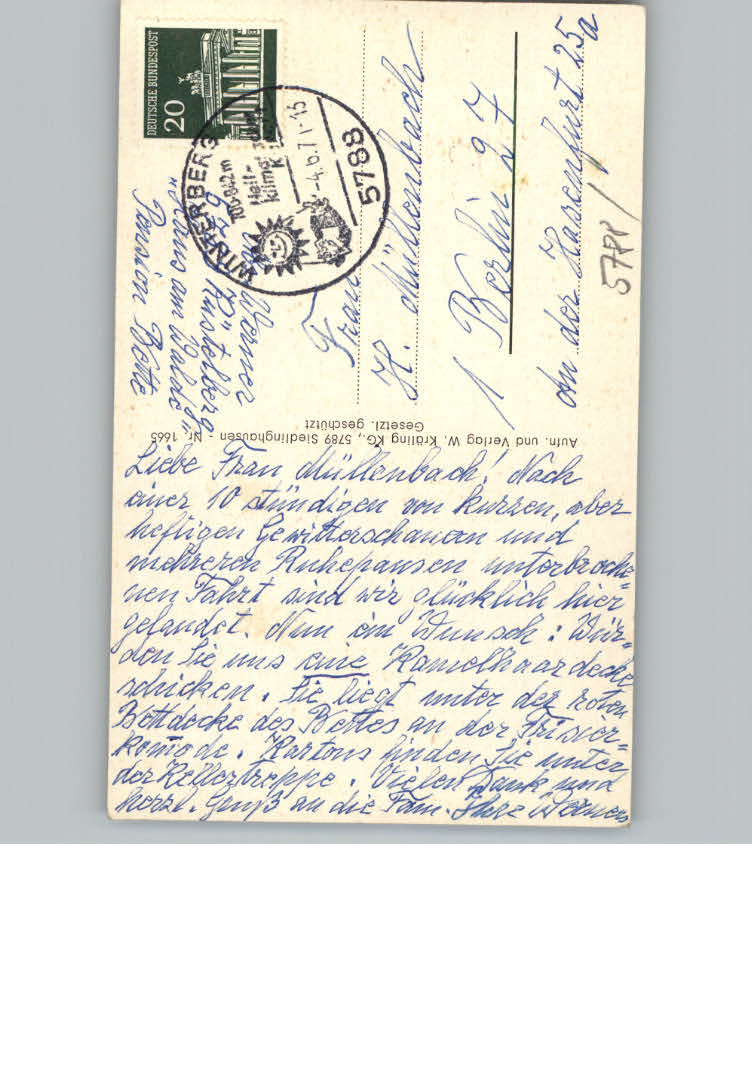 Liebe Frau Müllenbach! Nach
einer 10 stündigen von kurzen, aber
heftigen Gewitterschauern und
mehreren Ruhepausen unterbroche=
nen Fahrt sind wir glücklich hier
gelandet. Nun ein Wunsch: Wür=
den Sie uns eine Kamelhaardecke
schicken. Sie liegt unter der roten
Bettdecke des Bettes an der Frisier=
komode. Kartons finden Sie unter
der Kellertreppe. Vielen Dank und
herzl. Gruß an die Fam. Ihre Werners
Aufn. und Verlag W. Kräling KG., 5789 Siedlinghausen - Nr. 1665
Gesetzl. geschützt
Werner
Küstelberg
"Haus am Walde"
Pension Bette
DEUTSCHE BUNDESPOST
20
WINTERBERG
700-842m
Heil-
klima
-4.6.71-15
5788
Frau
H. Müllenbach
1 Berlin 27
An der Hasenfurt 25a
5788/